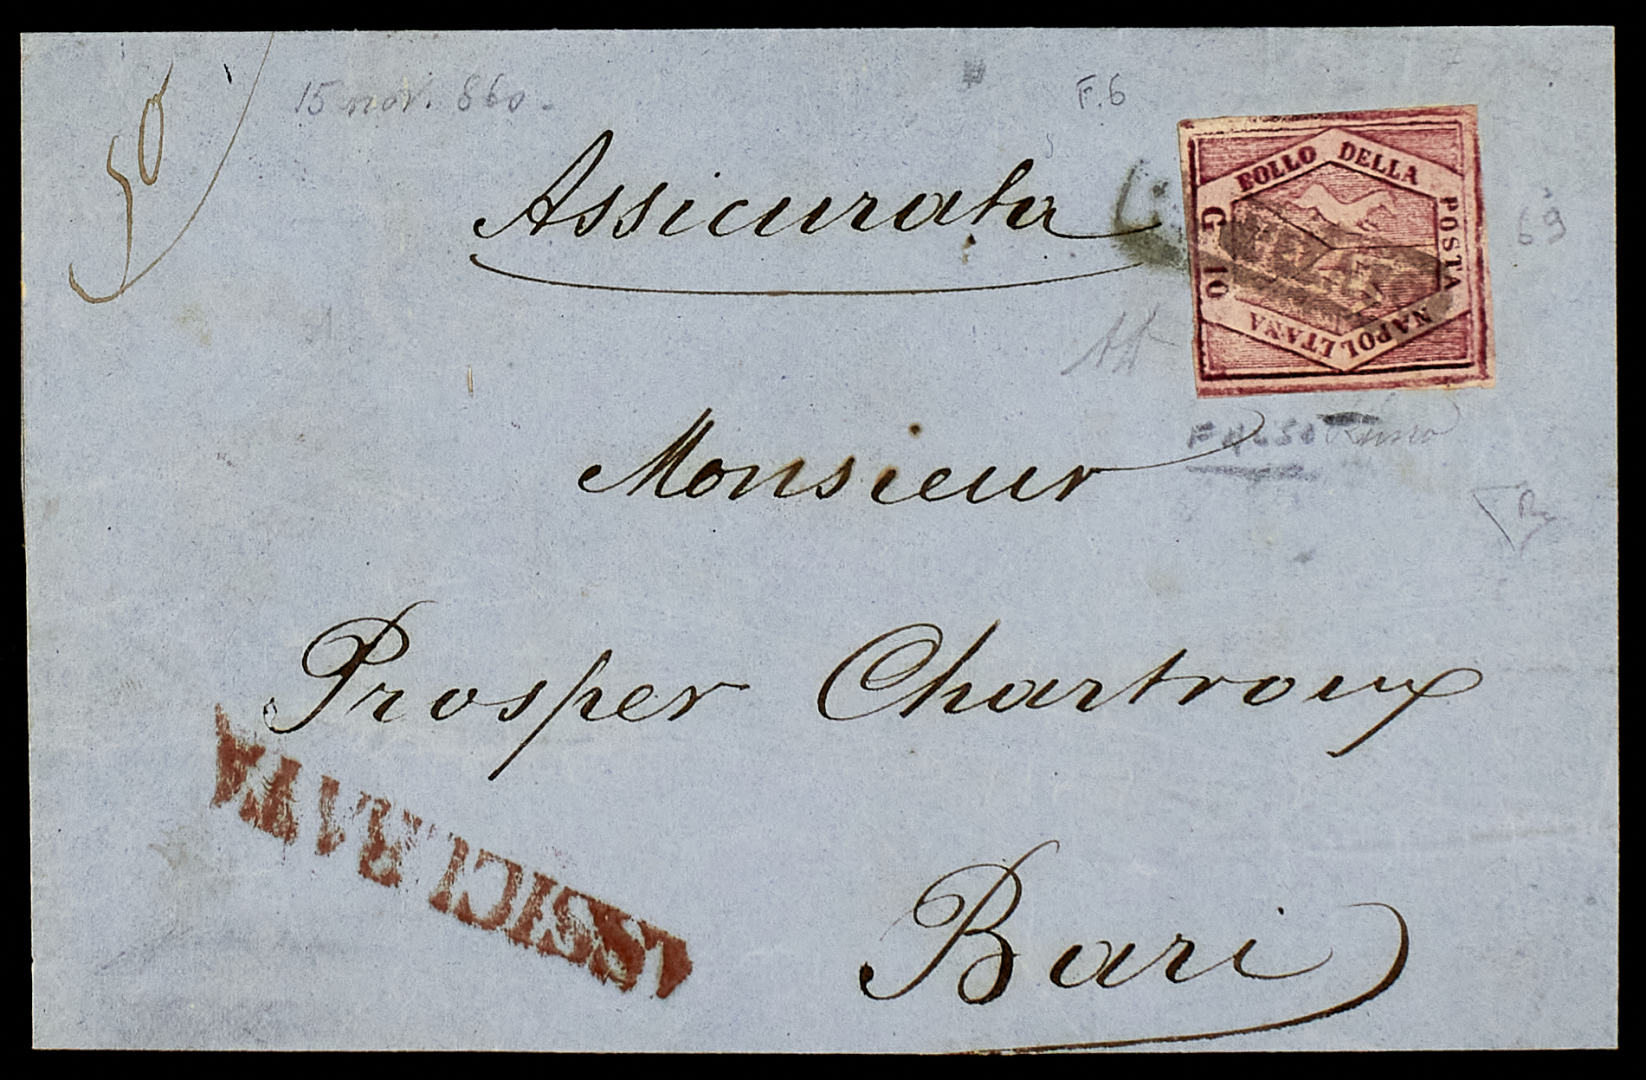 50
15 nov. 860.
F.6
Assicurata
BOLLO DELLA POSTA NAPOLETANA
G 10
69
FALSO
Monsieur
Prosper Chartroux
ASSICURATA
Bari